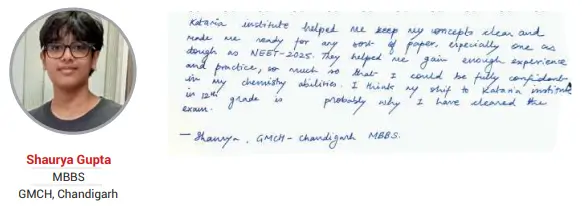 Kataria institute helped me keep my concepts clear and
made me ready for any sort of paper, especially one as
dough as NEET-2025. They helped me gain enough experience
and practice, so much so that I could be fully confident
in my chemistry abilities. I think my shift to Kataria institute
in 12th grade is probably why I have cleared the
exam.
— Shaurya, GMCH - Chandigarh MBBS.
Shaurya Gupta
MBBS
GMCH, Chandigarh